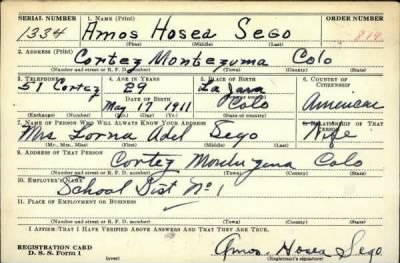 SERIAL NUMBER 1. NAME (Print) ORDER NUMBER
1334 Amos Hosea Sego 819
(First) (Middle) (Last)
2. ADDRESS (Print)
Cortez Montezuma Colo
(Number and street or R. F. D. number) (Town) (County) (State)
3. TELEPHONE 4. AGE IN YEARS 5. PLACE OF BIRTH 6. COUNTRY OF CITIZENSHIP
51 Cortez 29 La Jara American
DATE OF BIRTH
May 17 1911 Colo
(Exchange) (Number) (Mo.) (Day) (Yr.) (State or country)
7. NAME OF PERSON WHO WILL ALWAYS KNOW YOUR ADDRESS 8. RELATIONSHIP OF THAT PERSON
Mrs Lorna Sego Wife
(Mr., Mrs., Miss) (First) (Middle) (Last)
9. ADDRESS OF THAT PERSON
Cortez Montezuma Colo
(Number and street or R. F. D. number) (Town) (County) (State)
10. EMPLOYER'S NAME
School Dist No. 1
11. PLACE OF EMPLOYMENT OR BUSINESS
(Number and street or R. F. D. number) (Town) (County) (State)
I AFFIRM THAT I HAVE VERIFIED ABOVE ANSWERS AND THAT THEY ARE TRUE.
REGISTRATION CARD
D. S. S. Form 1 Amos Hosea Sego
(Registrant's signature)